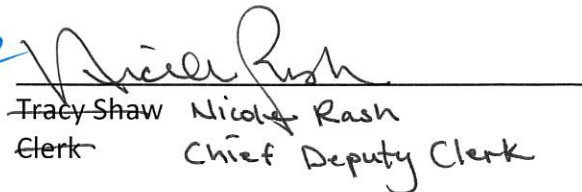 Nicole Rash
Tracy Shaw Nicole Rash
Clerk Chief Deputy Clerk